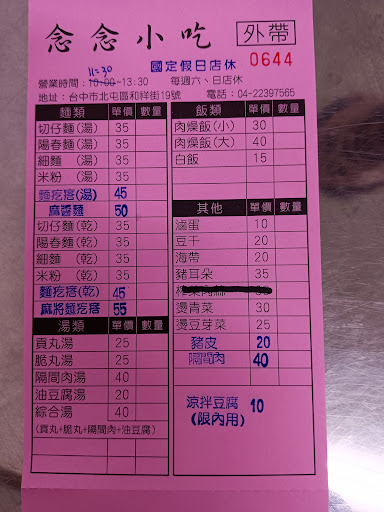 念念小吃 外帶
國定假日店休 0644
11:30
營業時間:10:00~13:30 每週六、日店休
地址:台中市北屯區和祥街19號 電話:04-22397565
麵類 單價 數量
切仔麵(湯) 35
陽春麵(湯) 35
細麵 (湯) 35
米粉 (湯) 35
麵疙瘩(湯) 45
麻醬麵 50
切仔麵(乾) 35
陽春麵(乾) 35
細麵 (乾) 35
米粉 (乾) 35
麵疙瘩(乾) 45
麻將麵疙瘩 55
湯類 單價 數量
貢丸湯 25
脆丸湯 25
隔間肉湯 40
油豆腐湯 20
綜合湯 40
(貢丸+脆丸+隔間肉+油豆腐)
飯類 單價 數量
肉燥飯(小) 30
肉燥飯(大) 40
白飯 15
其他 單價 數量
滷蛋 10
豆干 20
海帶 20
豬耳朵 35
燙青菜 30
燙豆芽菜 25
豬皮 20
隔間肉 40
涼拌豆腐 10
(限內用)